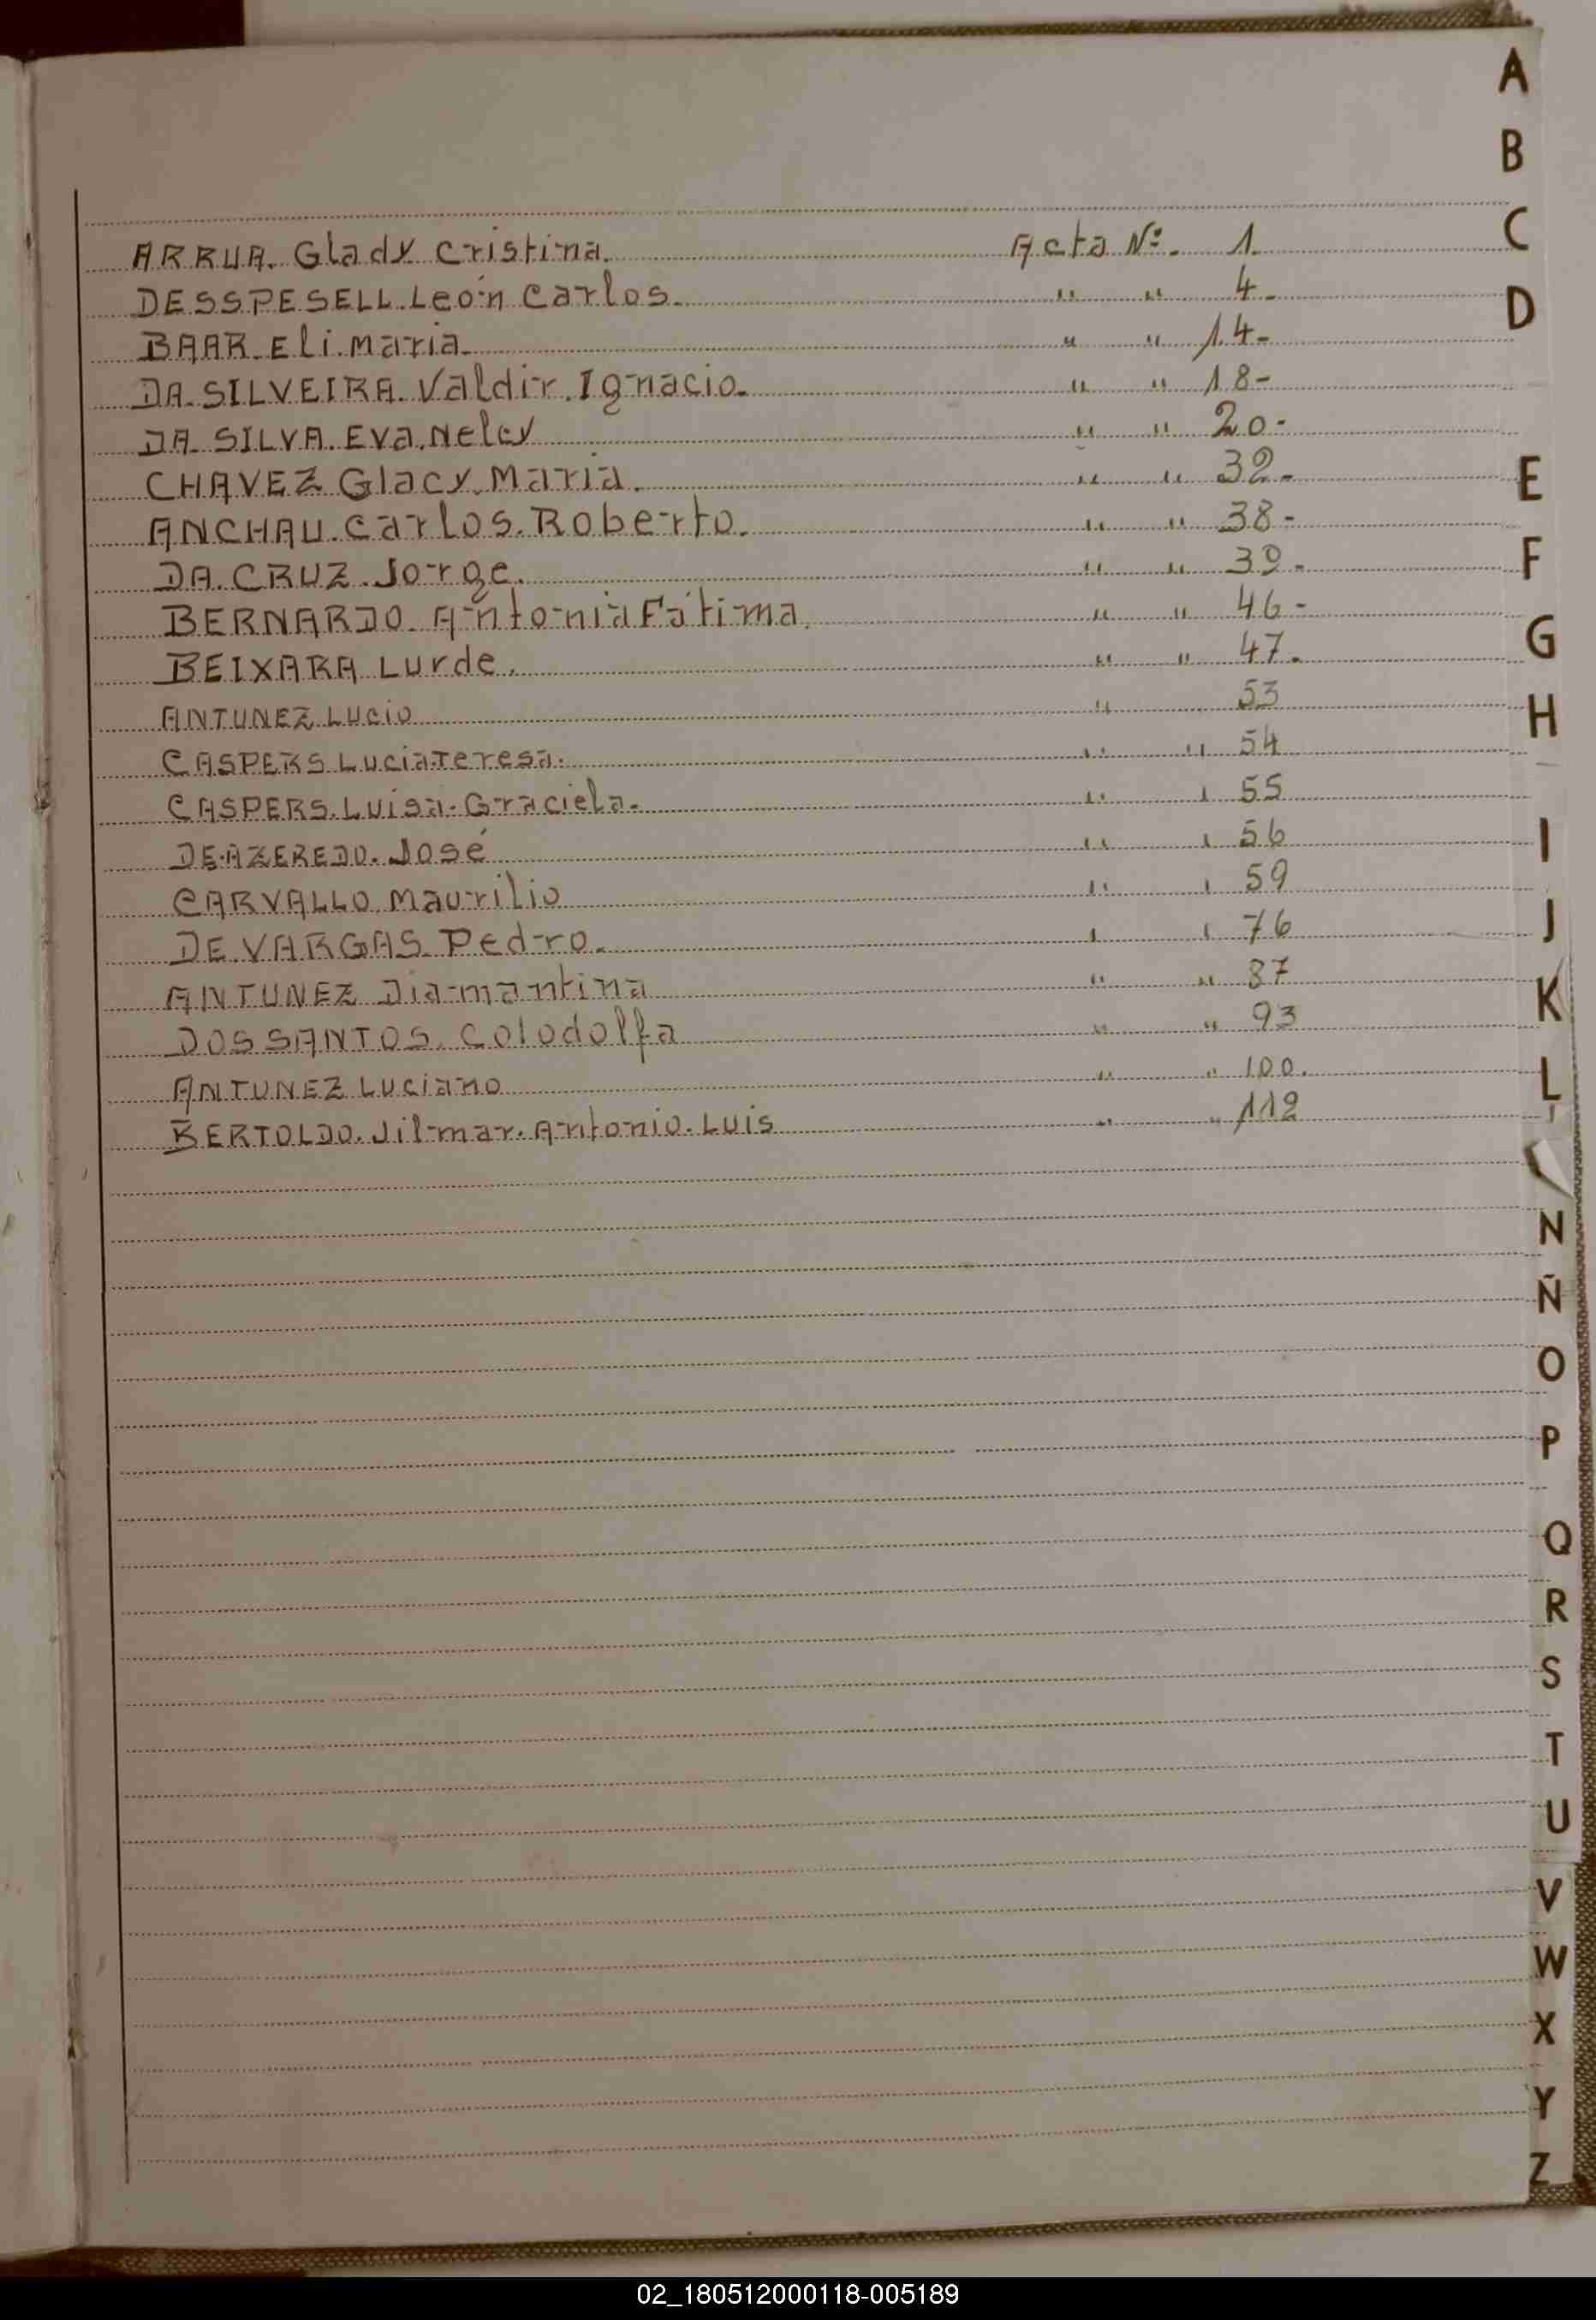 A
B
C
D
E
F
G
H
I
J
K
L
N
Ñ
O
P
Q
R
S
T
U
V
W
X
Y
Z
ARRUA. Glady Cristina. Acta Nº. 1.
DESSPESELL. León Carlos. " " 4.
BAAR. Eli. Maria. " " 14-
DA. SILVEIRA. Valdir. Ignacio. " " 18-
DA. SILVA. Eva. Nelcy " " 20-
CHAVEZ Glacy. Maria. " " 32-
ANCHAU. Carlos. Roberto. " " 38-
DA. CRUZ. Jorge. " " 39-
BERNARDO. Antonia Fátima. " " 46-
BEIXARA Lurde. " " 47.
ANTUNEZ Lucio " 53
CASPERS Lucia Teresa. " " 54
CASPERS. Luisa. Graciela. " ' 55
DE.AZEREDO. José " ' 56
CARVALLO Maurilio " ' 59
DE.VARGAS Pedro. ' ' 76
ANTUNEZ Diamantina " " 87
DOS SANTOS. Colodolfa " " 93
ANTUNEZ Luciano " " 100.
BERTOLDO. Jilmar. Antonio. Luis " " 112
02_180512000118-005189